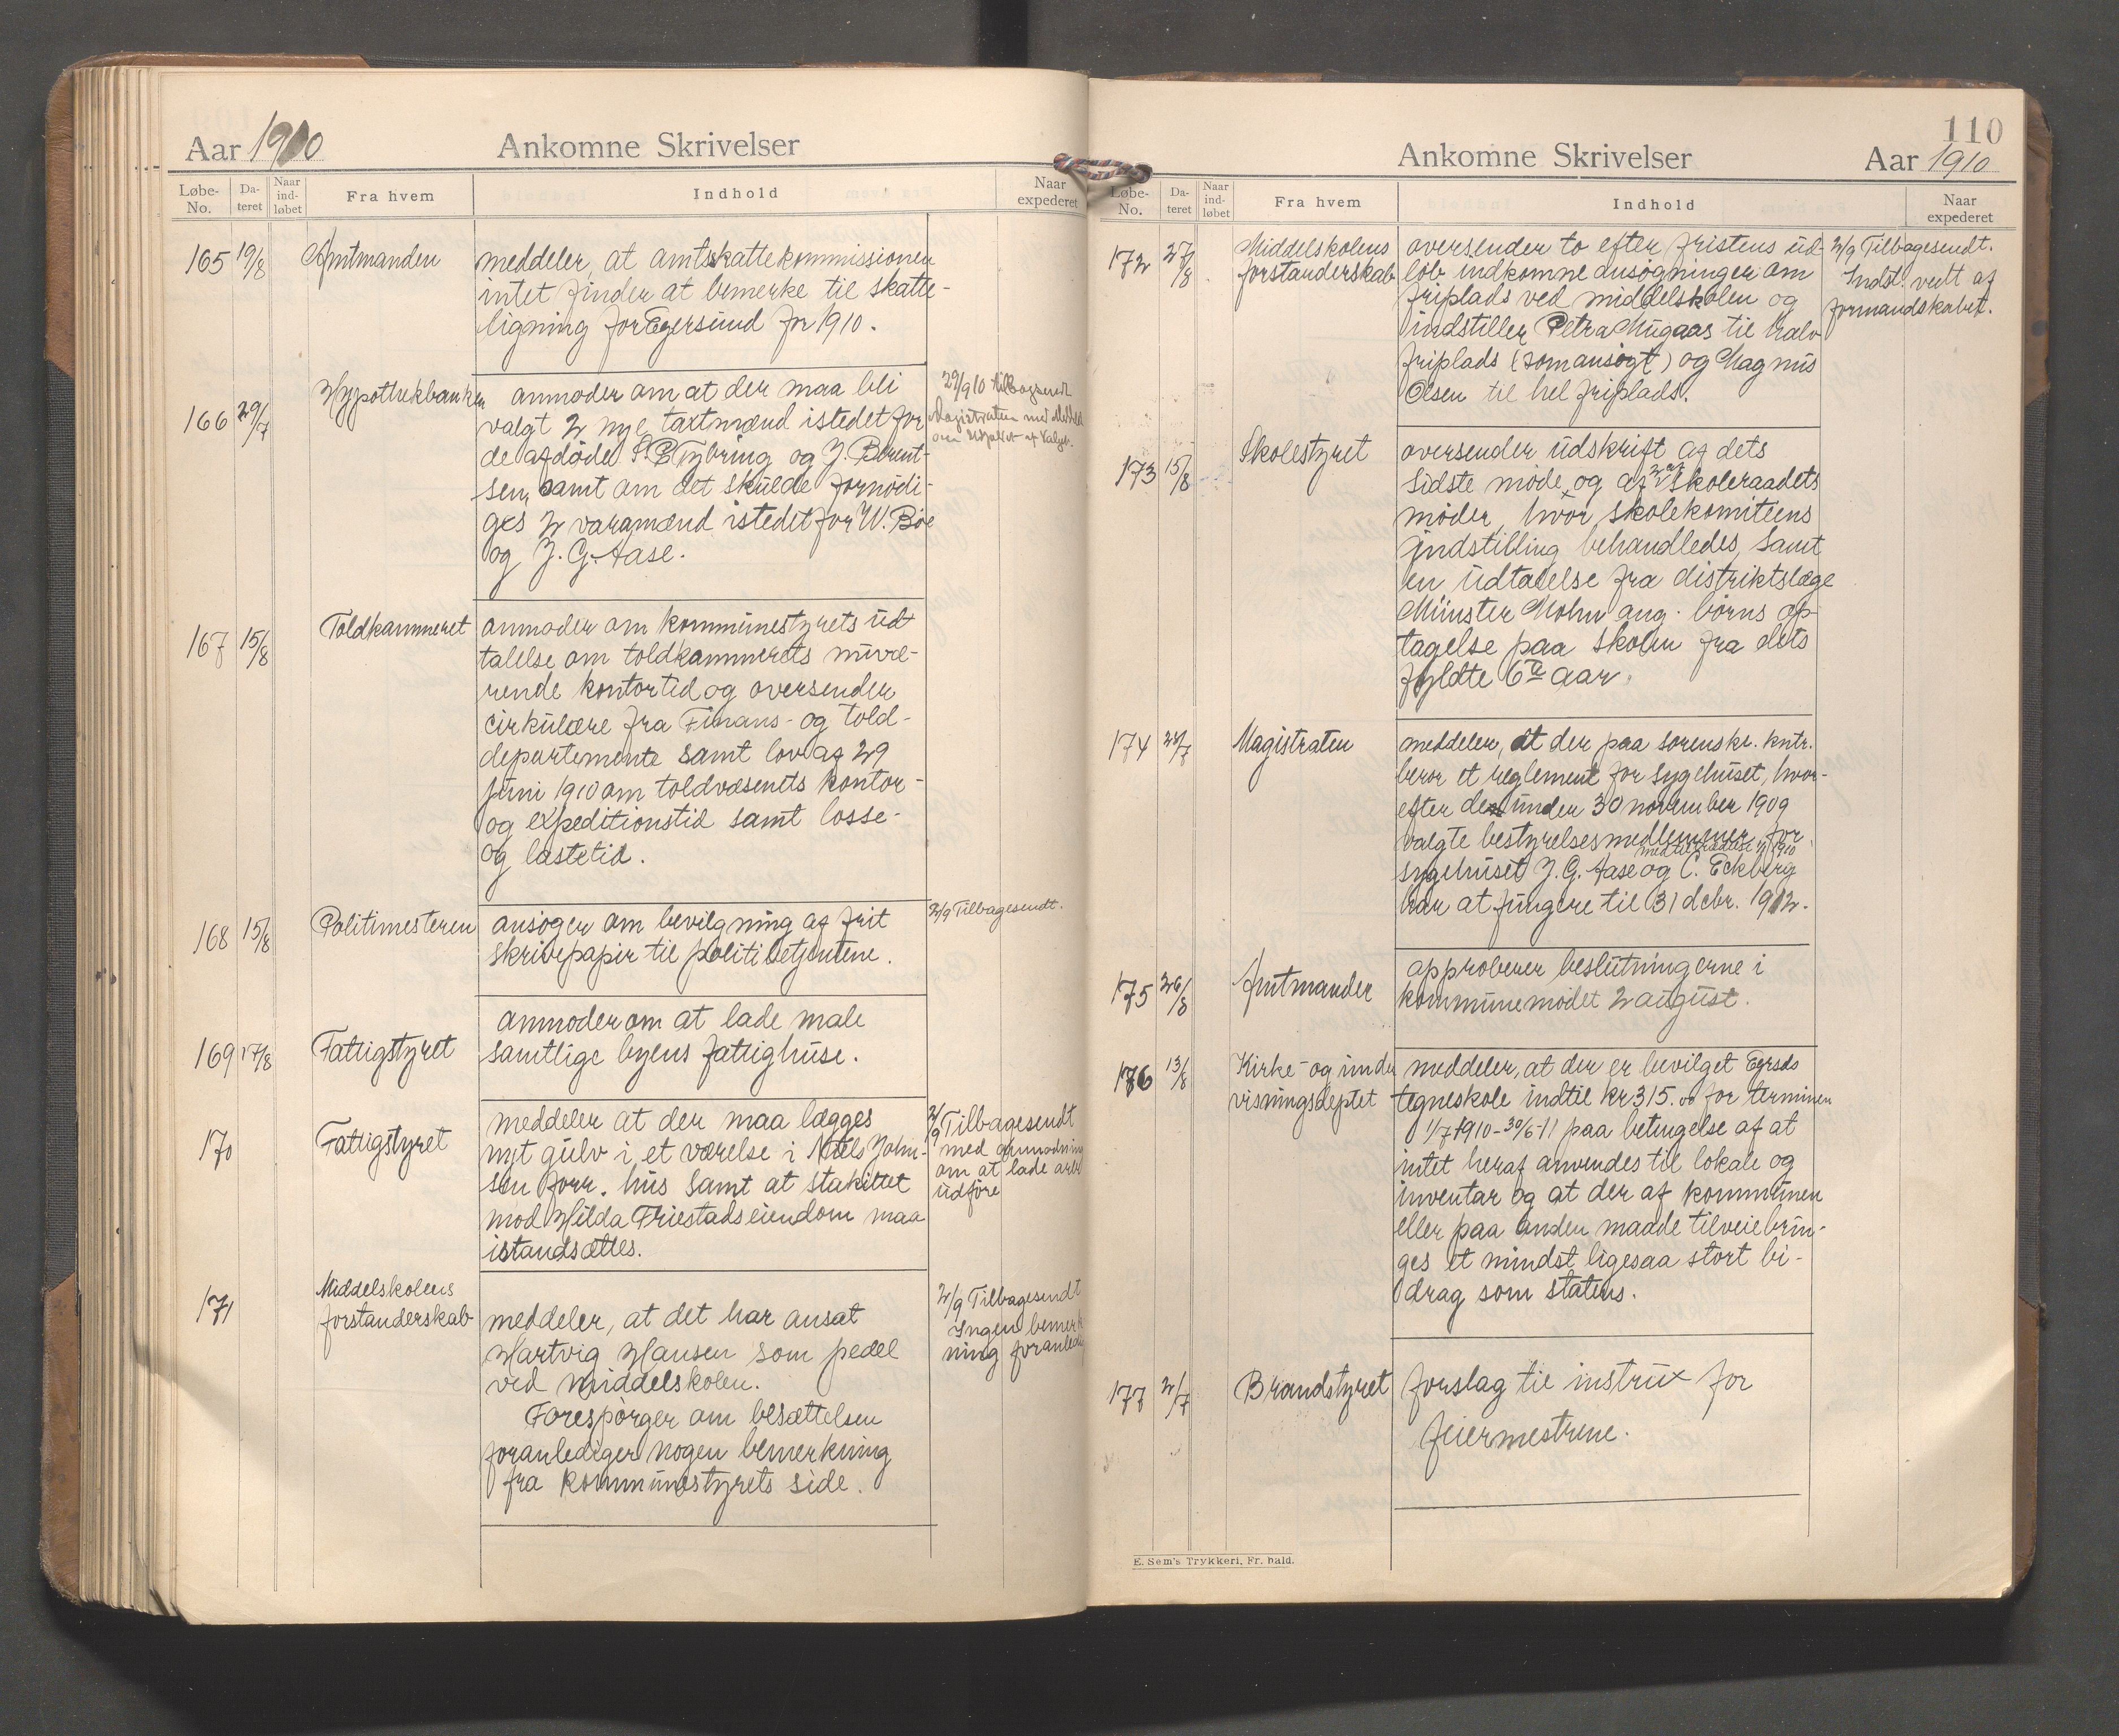 Aar 1910
Ankomne Skrivelser
Løbe-No.
Dateret
Naar indløbet
Fra hvem
Indhold
Naar expederet
165 19/8 Amtmanden
meddeler, at amtsskattekommissionen
intet finder at bemerke til skatte-
ligning for Egersund for 1910.
166 29/7 Hypothekbanken
anmoder om at der maa bli
valgt 2 nye taxtmænd istedet for
de afdøde P. E. Tybring og J. Berent-
sen, samt om det skulde fornødi-
ges 2 varamænd istedet for W. Bøe
og J. G. Aase.
29/9 10 tilbagesendt
Magistraten med
om af Valget.
167 15/8 Toldkammeret
anmoder om kommunestyrets ud
talelse om toldkammerets nuvæ-
rende kontortid og oversender
cirkulære fra Finans- og told-
departemente samt lov af 29
juni 1910 om toldvæsenets kontor-
og expeditionstid samt losse-
og lastetid.
168 15/8 Politimesteren
ansøger om bevilgning af frit
skrivepapir til politibetjentene.
2/9 Tilbagesendt.
169 17/8 Fattigstyret
anmoder om at lade male
samtlige byens fattighuse.
170 Fattigstyret
meddeler at der maa lægges
nyt gulv i et værelse i Niels John-
sen forr. hus samt at stakittet
mod Hilda Friestads eiendom maa
istandsættes.
2/9 Tilbagesendt
med anmodning
om at lade arb
udføre
171 Middelskolens
forstanderskab
meddeler, at det har ansat
Hartvig Hansen som pedel
ved middelskolen.
Forespørger om besættelsen
foranlediger nogen bemerkning
fra kommunestyrets side.
2/9 Tilbagesendt
Ingen bemerk
ning foranledi
110
Ankomne Skrivelser
Aar 1910
Løbe-No.
Dateret
Naar indløbet
Fra hvem
Indhold
Naar expederet
172 27/8 Middelskolens
forstanderskab
oversender to efter fristens ud-
løb indkomne ansøgninger om
friplads ved middelskolen og
indstiller Petra Mugaas til halv
friplads (som ansøgt) og Magnus
Olsen til hel friplads.
2/9 Tilbagesendt.
Indst. vedt af
formandskabet.
173 15/8 Skolestyret
oversender udskrift af dets
sidste møde, og af 2 skoleraadets
møder, hvor skolekomiteens
indstilling behandledes, samt
en udtalelse fra distriktslæge
Münster Mohn ang. børns op-
tagelse paa skolen fra dets
fyldte 6te aar.
174 28/7 Magistraten
meddeler, at der paa sorenskr. kntr.
beror et reglement for sygehuset, hvor-
efter de under 30 november 1909
valgte bestyrelsesmedlemmer for
med tiltrædelse 1/1 1910
sygehuset J. G. Aase og C. Eckberg
har at fungere til 31 dcbr. 1912.
175 26/8 Amtmanden
approberer beslutningerne i
kommunemødet 2 august.
176 13/8 Kirke- og under
visningsdeptet
meddeler, at der er bevilget Egrsds
tegneskole indtil kr 315.00 for terminen
1/7 1910 - 30/6-11 paa betingelse af at
intet heraf anvendes til lokale og
inventar og at der af kommunen
eller paa anden maade tilveiebrin-
ges et mindst ligesaa stort bi-
drag som statens.
177 2/7 Brandstyret
forslag til instrux for
feiermestrene.
E. Sem's Trykkeri, Fr. hald.